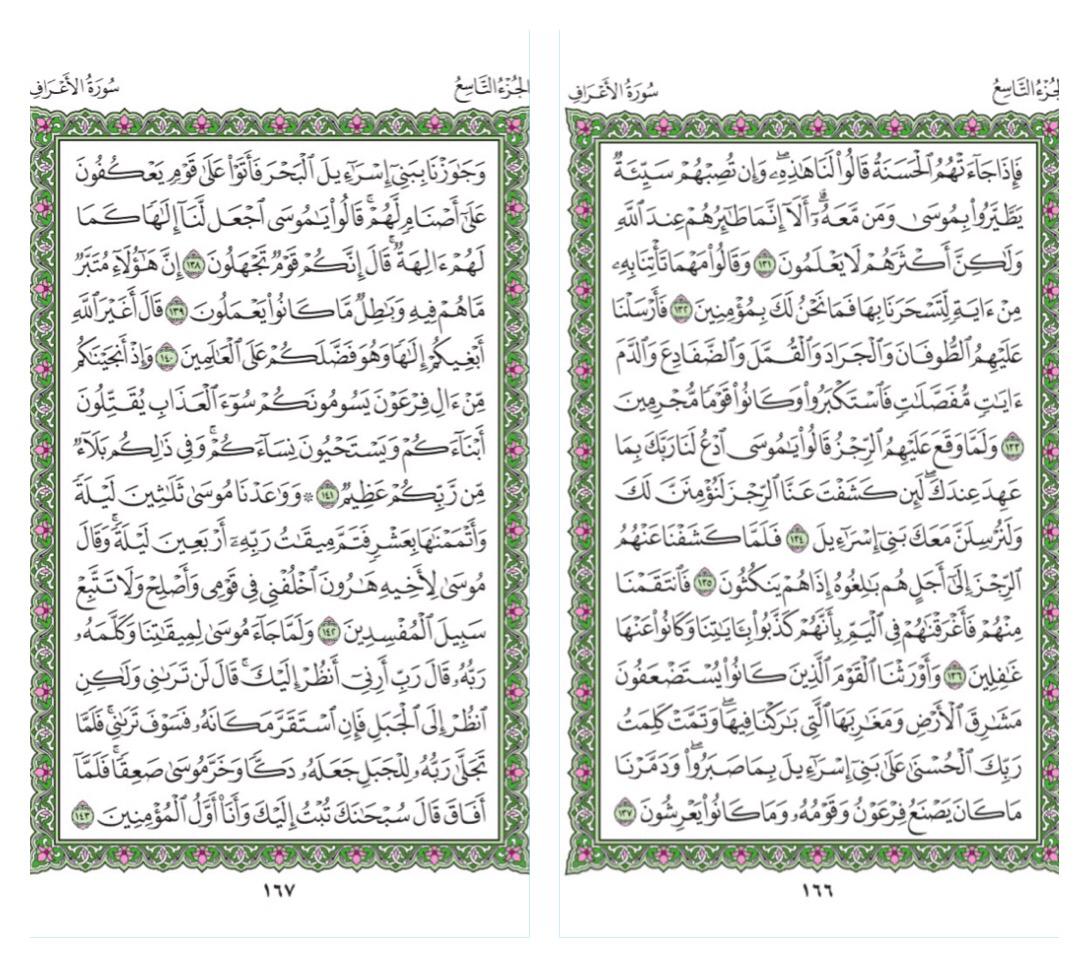 الجُزْءُ التَّاسِعُ
سُورَةُ الأَعْرَافِ
فَإِذَا جَآءَتْهُمُ ٱلْحَسَنَةُ قَالُوا۟ لَنَا هَٰذِهِۦۖ وَإِن تُصِبْهُمْ سَيِّئَةٌ
يَطَّيَّرُوا۟ بِمُوسَىٰ وَمَن مَّعَهُۥٓۗ أَلَآ إِنَّمَا طَٰٓئِرُهُمْ عِندَ ٱللَّهِ
وَلَٰكِنَّ أَكْثَرَهُمْ لَا يَعْلَمُونَ ١٣١ وَقَالُوا۟ مَهْمَا تَأْتِنَا بِهِۦ
مِنْ ءَايَةٍ لِّتَسْحَرَنَا بِهَا فَمَا نَحْنُ لَكَ بِمُؤْمِنِينَ ١٣٢ فَأَرْسَلْنَا
عَلَيْهِمُ ٱلطُّوفَانَ وَٱلْجَرَادَ وَٱلْقُمَّلَ وَٱلضَّفَادِعَ وَٱلدَّمَ
ءَايَٰتٍ مُّفَصَّلَٰتٍ فَٱسْتَكْبَرُوا۟ وَكَانُوا۟ قَوْمًا مُّجْرِمِينَ
١٣٣ وَلَمَّا وَقَعَ عَلَيْهِمُ ٱلرِّجْزُ قَالُوا۟ يَٰمُوسَى ٱدْعُ لَنَا رَبَّكَ بِمَا
عَهِدَ عِندَكَۖ لَئِن كَشَفْتَ عَنَّا ٱلرِّجْزَ لَنُؤْمِنَنَّ لَكَ
وَلَنُرْسِلَنَّ مَعَكَ بَنِىٓ إِسْرَٰٓءِيلَ ١٣٤ فَلَمَّا كَشَفْنَا عَنْهُمُ
ٱلرِّجْزَ إِلَىٰٓ أَجَلٍ هُم بَٰلِغُوهُ إِذَا هُمْ يَنكُثُونَ ١٣٥ فَٱنتَقَمْنَا
مِنْهُمْ فَأَغْرَقْنَٰهُمْ فِى ٱلْيَمِّ بِأَنَّهُمْ كَذَّبُوا۟ بِـَٔايَٰتِنَا وَكَانُوا۟ عَنْهَا
غَٰفِلِينَ ١٣٦ وَأَوْرَثْنَا ٱلْقَوْمَ ٱلَّذِينَ كَانُوا۟ يُسْتَضْعَفُونَ
مَشَٰرِقَ ٱلْأَرْضِ وَمَغَٰرِبَهَا ٱلَّتِى بَٰرَكْنَا فِيهَاۖ وَتَمَّتْ كَلِمَتُ
رَبِّكَ ٱلْحُسْنَىٰ عَلَىٰ بَنِىٓ إِسْرَٰٓءِيلَ بِمَا صَبَرُوا۟ۖ وَدَمَّرْنَا
مَا كَانَ يَصْنَعُ فِرْعَوْنُ وَقَوْمُهُۥ وَمَا كَانُوا۟ يَعْرِشُونَ ١٣٧
١٦٦
الجُزْءُ التَّاسِعُ
سُورَةُ الأَعْرَافِ
وَجَٰوَزْنَا بِبَنِىٓ إِسْرَٰٓءِيلَ ٱلْبَحْرَ فَأَتَوْا۟ عَلَىٰ قَوْمٍ يَعْكُفُونَ
عَلَىٰٓ أَصْنَامٍ لَّهُمْۚ قَالُوا۟ يَٰمُوسَى ٱجْعَل لَّنَآ إِلَٰهًا كَمَا
لَهُمْ ءَالِهَةٌۚ قَالَ إِنَّكُمْ قَوْمٌ تَجْهَلُونَ ١٣٨ إِنَّ هَٰٓؤُلَآءِ مُتَبَّرٌ
مَّا هُمْ فِيهِ وَبَٰطِلٌ مَّا كَانُوا۟ يَعْمَلُونَ ١٣٩ قَالَ أَغَيْرَ ٱللَّهِ
أَبْغِيكُمْ إِلَٰهًا وَهُوَ فَضَّلَكُمْ عَلَى ٱلْعَٰلَمِينَ ١٤٠ وَإِذْ أَنجَيْنَٰكُم
مِّنْ ءَالِ فِرْعَوْنَ يَسُومُونَكُمْ سُوٓءَ ٱلْعَذَابِ يُقَتِّلُونَ
أَبْنَآءَكُمْ وَيَسْتَحْيُونَ نِسَآءَكُمْۚ وَفِى ذَٰلِكُم بَلَآءٌ
مِّن رَّبِّكُمْ عَظِيمٌ ١٤١ ۞ وَوَٰعَدْنَا مُوسَىٰ ثَلَٰثِينَ لَيْلَةً
وَأَتْمَمْنَٰهَا بِعَشْرٍ فَتَمَّ مِيقَٰتُ رَبِّهِۦٓ أَرْبَعِينَ لَيْلَةًۚ وَقَالَ
مُوسَىٰ لِأَخِيهِ هَٰرُونَ ٱخْلُفْنِى فِى قَوْمِى وَأَصْلِحْ وَلَا تَتَّبِعْ
سَبِيلَ ٱلْمُفْسِدِينَ ١٤٢ وَلَمَّا جَآءَ مُوسَىٰ لِمِيقَٰتِنَا وَكَلَّمَهُۥ
رَبُّهُۥ قَالَ رَبِّ أَرِنِىٓ أَنظُرْ إِلَيْكَۚ قَالَ لَن تَرَىٰنِى وَلَٰكِنِ
ٱنظُرْ إِلَى ٱلْجَبَلِ فَإِنِ ٱسْتَقَرَّ مَكَانَهُۥ فَسَوْفَ تَرَىٰنِىۚ فَلَمَّا
تَجَلَّىٰ رَبُّهُۥ لِلْجَبَلِ جَعَلَهُۥ دَكًّا وَخَرَّ مُوسَىٰ صَعِقًاۚ فَلَمَّآ
أَفَاقَ قَالَ سُبْحَٰنَكَ تُبْتُ إِلَيْكَ وَأَنَا۠ أَوَّلُ ٱلْمُؤْمِنِينَ ١٤٣
١٦٧